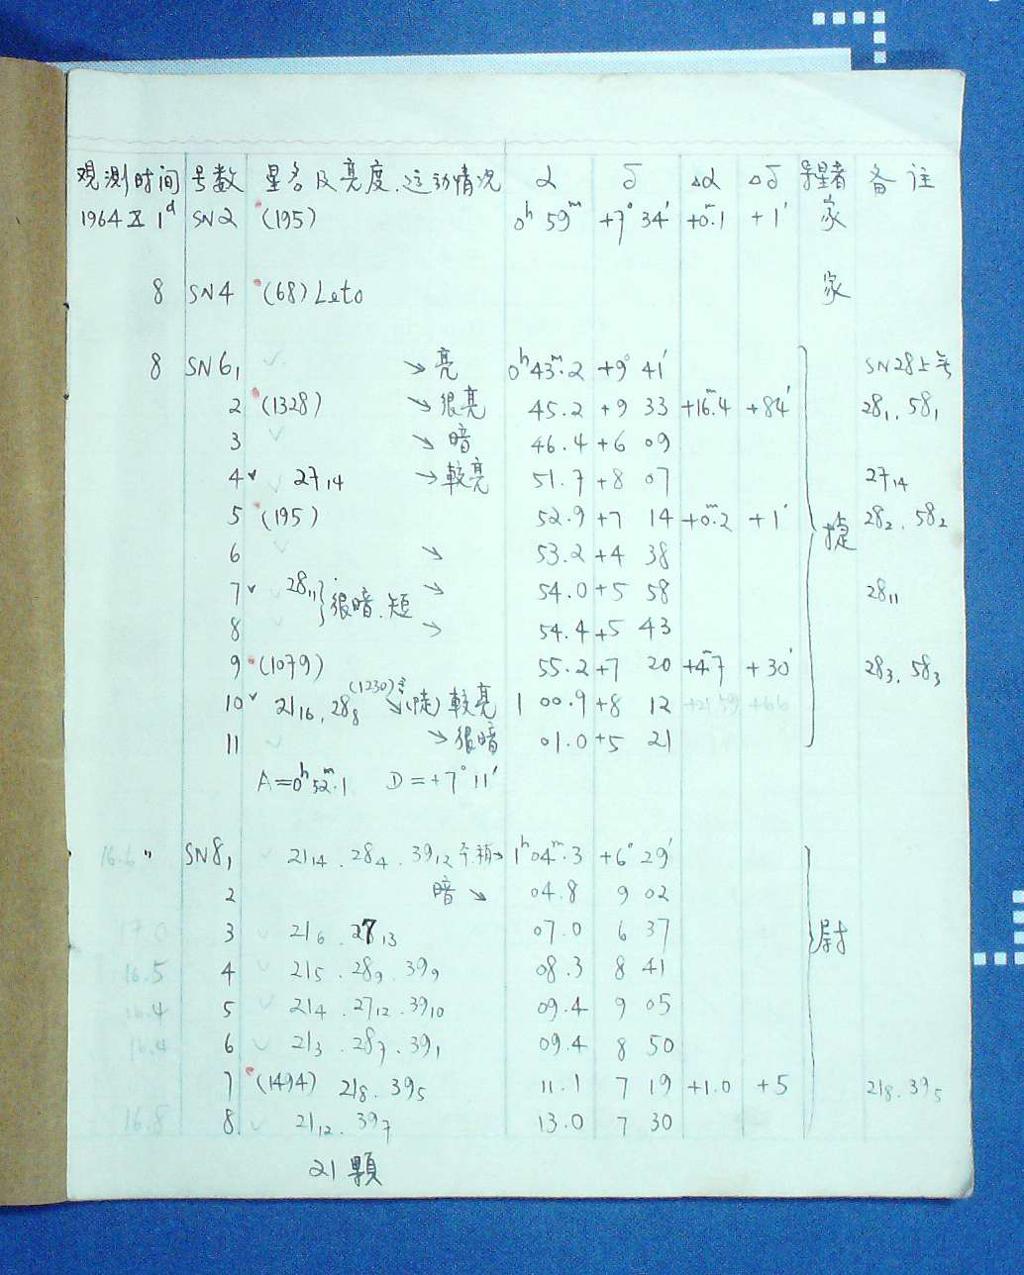 观测时间 号数 星名及亮度.运动情况 α δ Δα Δδ 寻星者 备注
1964 X 1ᵈ SN2 (195) 0ʰ 59ᵐ +7° 34′ +0ᵐ.1 +1′ 家
8 SN4 (68) Leto 家
8 SN6₁ ✓ → 亮 0ʰ 43ᵐ.2 +9° 41′ SN28上无
2 (1328) → 很亮 45.2 +9 33 +16ᵐ.4 +84′ 28₁, 58₁
3 ✓ → 暗 46.4 +6 09
4 ✓ 27₁₄ → 較亮 51.7 +8 07 27₁₄
5 (195) 52.9 +7 14 +0ᵐ.2 +1′ 捷 28₂, 58₂
6 ✓ → 53.2 +4 38
7 ✓ 28₁₁ → 54.0 +5 58 28₁₁
很暗.短
8 → 54.4 +5 43
9 (1079) 55.2 +7 20 +4ᵐ.7 +30′ 28₃, 58₃
(1230)
10 ✓ 21₁₆, 28₈ → 較亮 1 00.9 +8 12
11 ✓ → 很暗 01.0 +5 21
A=0ʰ 52ᵐ.1 D=+7° 11′
" SN8₁ ✓ 21₁₄ . 28₄ . 39₁₂ 1ʰ 04ᵐ.3 +6° 29′
2 暗 → 04.8 9 02
3 ✓ 21₆ . 27₁₃ 07.0 6 37 尉
16.5 4 ✓ 21₅ . 28₉ . 39₉ 08.3 8 41
16.4 5 ✓ 21₄ . 27₁₂ . 39₁₀ 09.4 9 05
16.4 6 ✓ 21₃ . 28₇ . 39₁ 09.4 8 50
7 (1494) 21₈ . 39₅ 11.1 7 19 +1.0 +5 21₈ . 39₅
16.8 8 ✓ 21₁₂ . 39₇ 13.0 7 30
21 顆